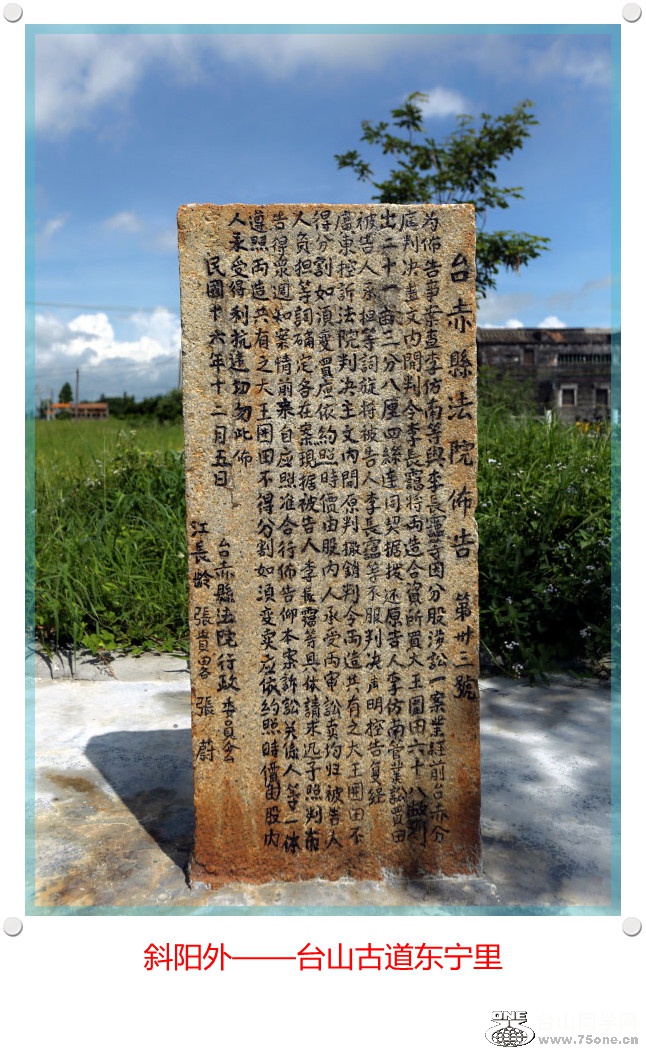 台赤縣法院佈告 第卅三號
為佈告事案查李仿南等與李長靄等因分股涉訟一案業經前台赤分
庭判决盖文内開判令李長靄將両造合資所買大王圍田六十八畝划
出二十一畝二分八厘四絲連同契据拨还原告人李仿南管業訟費由
被告人承担等詞旋将被告人李長靄等不服判决声明控告复经
廣東控訴法院判决主文内開原判撤銷判令両造共有之大王圍田不
得分割如須变賣应依約照時價由股内人承受両审訟卖均归被告人
人負担等詞确定各在案現据被告人李長靄等具状請求迅予照判布
告得眾週知案情前来自应照准合行佈告仰本案訴訟关係人等一体
遵照両造共有之大王囲田不得分割如須变卖应依約照時價由股内
人承受得利抗違切勿此佈
民國十六年十二月五日
台赤縣法院行政委員会
江長齡 張貴畧 張蔚
斜阳外——台山古道东宁里
ONE
台山同学网
www.75one.cn